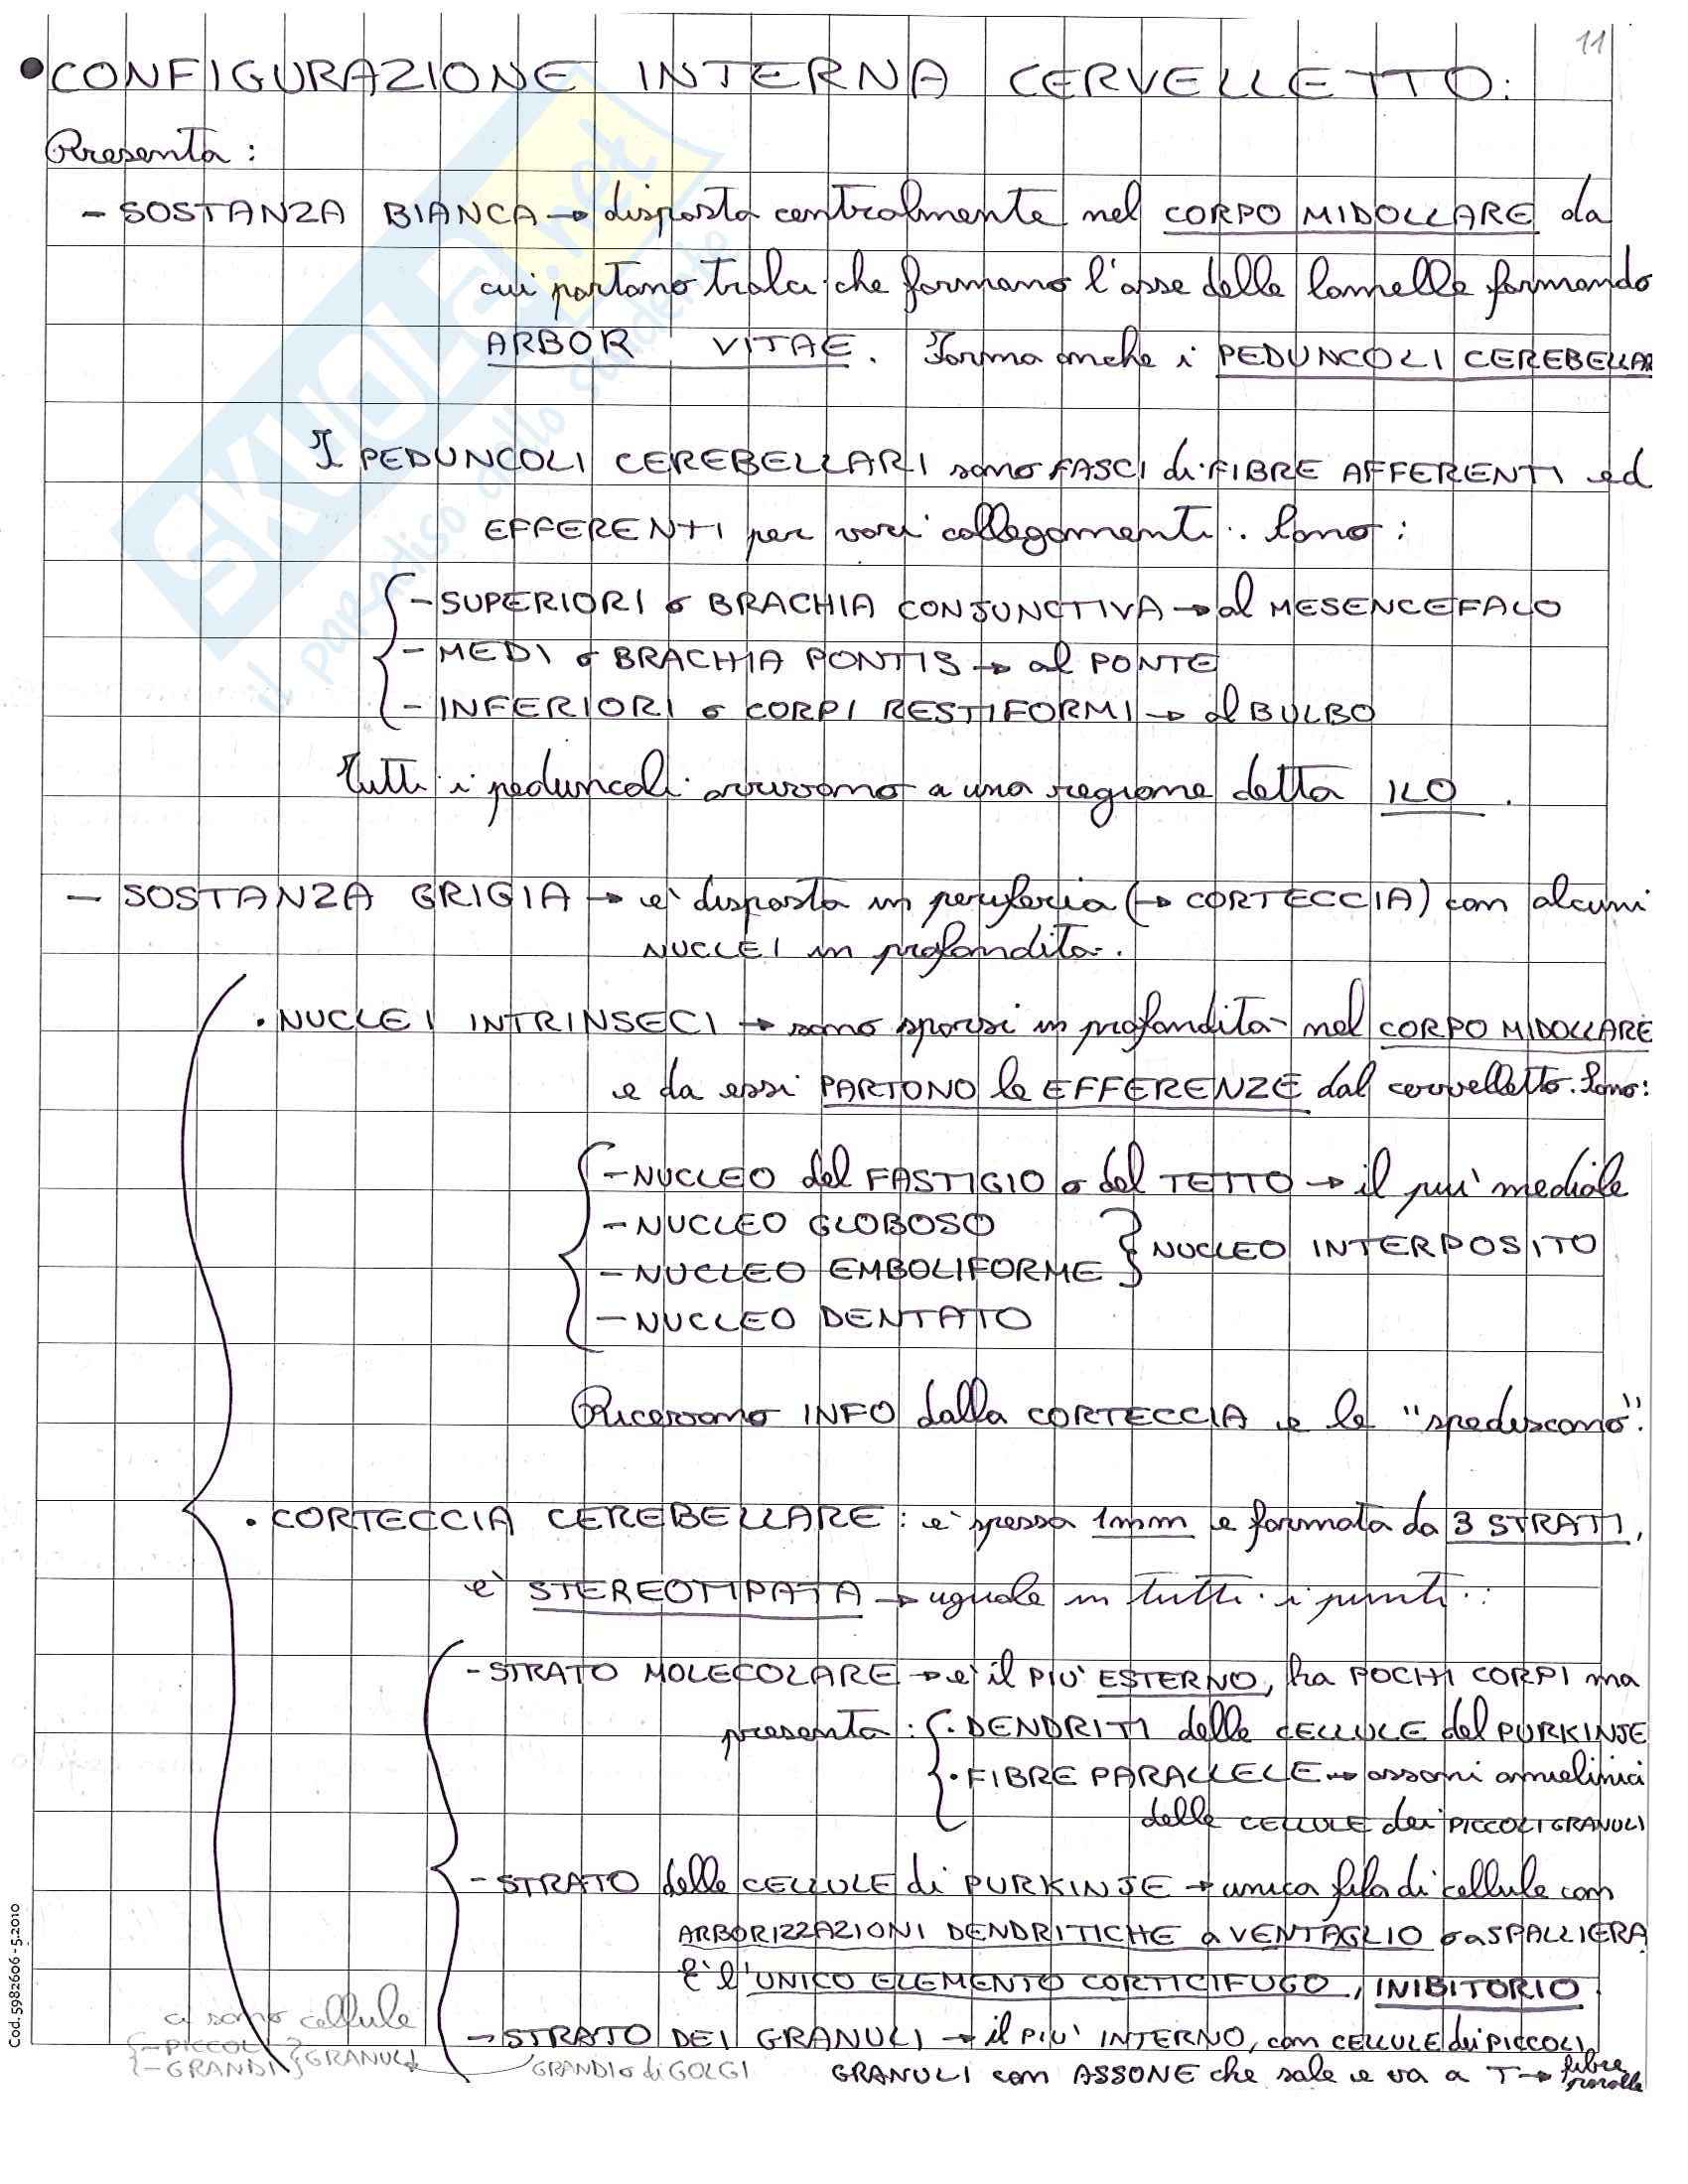 11
• CONFIGURAZIONE INTERNA CERVELLETTO:
Presenta:
- SOSTANZA BIANCA → disposta centralmente nel CORPO MIDOLLARE da
cui partono tralci che formano l'asse delle lamelle formando
ARBOR VITAE. Forma anche i PEDUNCOLI CEREBELLAR
I PEDUNCOLI CEREBELLARI sono FASCI di FIBRE AFFERENTI ed
EFFERENTI per vari collegamenti. Sono:
- SUPERIORI o BRACHIA CONJUNCTIVA → al MESENCEFALO
- MEDI o BRACHIA PONTIS → al PONTE
- INFERIORI o CORPI RESTIFORMI → al BULBO
Tutti i peduncoli arrivano a una regione detta ILO.
- SOSTANZA GRIGIA → è disposta in periferia (→ CORTECCIA) con alcuni
NUCLEI in profondità.
• NUCLEI INTRINSECI → sono sparsi in profondità nel CORPO MIDOLLARE
e da essi PARTONO le EFFERENZE dal cervelletto. Sono:
- NUCLEO del FASTIGIO o del TETTO → il più mediale
- NUCLEO GLOBOSO
- NUCLEO EMBOLIFORME } NUCLEO INTERPOSITO
- NUCLEO DENTATO
Ricevono INFO dalla CORTECCIA e le "spediscono".
• CORTECCIA CEREBELLARE: è spessa 1mm e formata da 3 STRATI,
è STEREOTIPATA → uguale in tutti i punti:
- STRATO MOLECOLARE → è il PIÙ ESTERNO, ha POCHI CORPI ma
presenta: { • DENDRITI delle CELLULE del PURKINJE
• FIBRE PARALLELE → assoni amielinici
delle CELLULE dei PICCOLI GRANULI
- STRATO delle CELLULE di PURKINJE → unica fila di cellule con
ARBORIZZAZIONI DENDRITICHE a VENTAGLIO o a SPALLIERA
È l'UNICO ELEMENTO CORTICIFUGO, INIBITORIO
- STRATO DEI GRANULI → il PIÙ INTERNO, con CELLULE dei PICCOLI
GRANULI con ASSONE che sale e va a T → fibre
parallele
ci sono cellule
- PICCOLI
- GRANDI } GRANULI
GRANDI o di GOLGI
SKUOLA.net
il paradiso dello studente
Cod. 5982606 - 5.2010